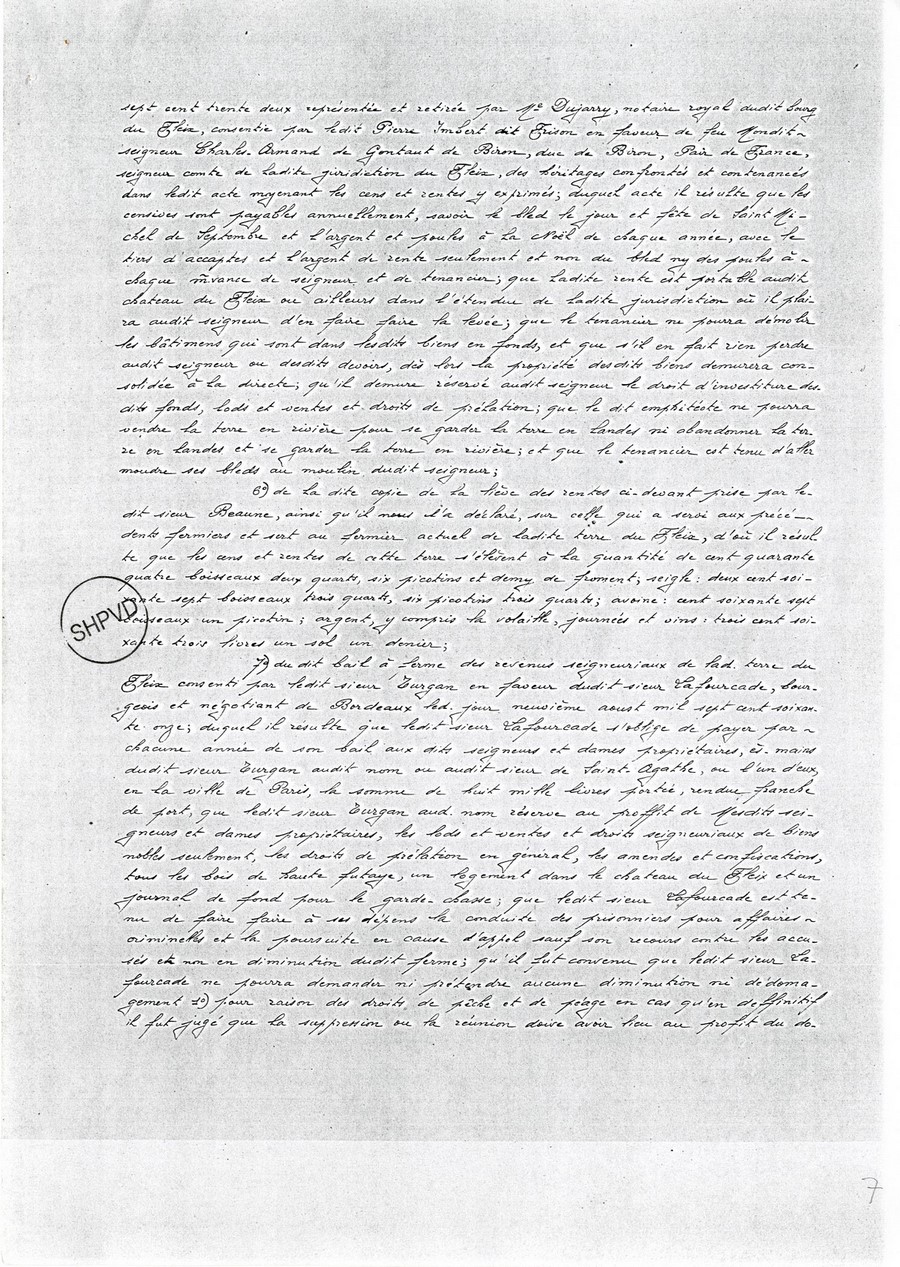 sept cent trente deux représentée et retirée par Me Dujarry, notaire royal dudit bourg
du Fleix, consentie par ledit Pierre Imbert dit Frison en faveur de feu Mondit-
seigneur Charles-Armand de Gontaut de Biron, duc de Biron, Pair de France,
seigneur comte de ladite juridiction du Fleix, des héritages confrontés et contenancés
dans ledit acte moyenant les cens et rentes y exprimés; duquel acte il résulte que les
censives sont payables annuellement, savoir le bled le jour et fête de Saint Mi-
chel de Septembre et l'argent et poules à la Noël de chaque année, avec le
tiers d'acaptes et l'argent de rente seulement et non du bled ny des poules à-
chaque m̃vance de seigneur et de tenancier; que ladite rente est portable audit
chateau du Fleix ou ailleurs dans l'étendue de ladite jurisdiction où il plai-
ra audit seigneur d'en faire faire la levée; que le tenancier ne pourra démolir
les bâtiments qui sont dans lesdits biens en fonds, et que s'il en fait rien perdre
audit seigneur ou desdits devoirs, dès lors la propriété desdits biens demurera con-
solidée à la directe; qu'il demure reservé audit seigneur le droit d'investiture des-
dits fonds, lods et ventes et droits de prélation; que le dit emphitéote ne pourra
vendre la terre en rivière pour se garder la terre en landes ni abandonner la ter-
re en landes et se garder la terre en rivière; et que le tenancier est tenu d'aller
moudre ses bleds au moulin dudit seigneur;
6°) de la dite copie de la liève des rentes ci-devant prise par le-
dit sieur Beaune, ainsi qu'il nous l'a déclaré, sur celle qui a servi aux précé-
dents fermiers et sert au fermier actuel de ladite terre du Fleix, d'où il résul-
te que les cens et rentes de cette terre s'élèvent à la quantité de cent quarante
quatre boisseaux deux quarts, six picotins et demy de froment; seigle: deux cent soi-
xante sept boisseaux trois quarts, six picotins trois quarts; avoine: cent soixante sept
boisseaux un picotin; argent, y compris la volaille, journées et vins: trois cent soi-
xante trois livres un sol un denier;
7°) du dit bail à ferme des revenus seigneuriaux de lad. terre du
Fleix consenti par ledit sieur Turgan en faveur dudit sieur Lafourcade, bour-
geois et négotiant de Bordeaux led. jour neuvième aoust mil sept cent soixan-
te onze; duquel il résulte que ledit sieur Lafourcade s'oblige de payer par-
chacune année de son bail aux dits seigneurs et dames propriétaires, ès-mains
dudit sieur Turgan audit nom ou audit sieur de Saint-Agathe, ou l'un d'eux,
en la ville de Paris, la somme de huit mille livres portée, rendue franche
de port, que ledit sieur Turgan aud. nom réserve au proffit de Mesdits sei-
gneurs et dames propriétaires, les lods et ventes et droits seigneuriaux de biens
nobles seulement, les droits de prélation en général, les amendes et confiscations,
tous les bois de haute futaye, un logement dans le chateau du Fleix et un
journal de fond pour le garde-chasse; que ledit sieur Lafourcade est te-
nu de faire faire à ses dépens la conduite des prisonniers pour affaires-
criminelles et la poursuite en cause d'appel sauf son recours contre les accu-
sés et non en diminution dudit ferme; qu'il fut convenu que ledit sieur La-
fourcade ne pourra demander ni prétendre aucune diminution ni dédoma-
gement 1°) pour raison des droits de pêche et de péage en cas qu'en deffinitif
il fut jugé que la suppression ou la réunion doive avoir lieu au profit du do-
SHPVD
7